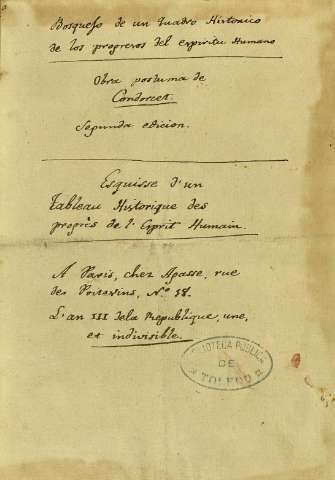 Bosquejo de un Quadro Historico
de los progresos del espiritu Humano
Obra postuma de
Condorcet.
Segunda edicion.
Esquisse d'un
Tableau Historique des
progrès de l'Esprit Humain.
A Paris, chez Agasse, rue
des Poitevins, Nº 18.
L'an III de la Republique, une,
et indivisible.
BIBLIOTECA PUBLICA
DE
TOLEDO